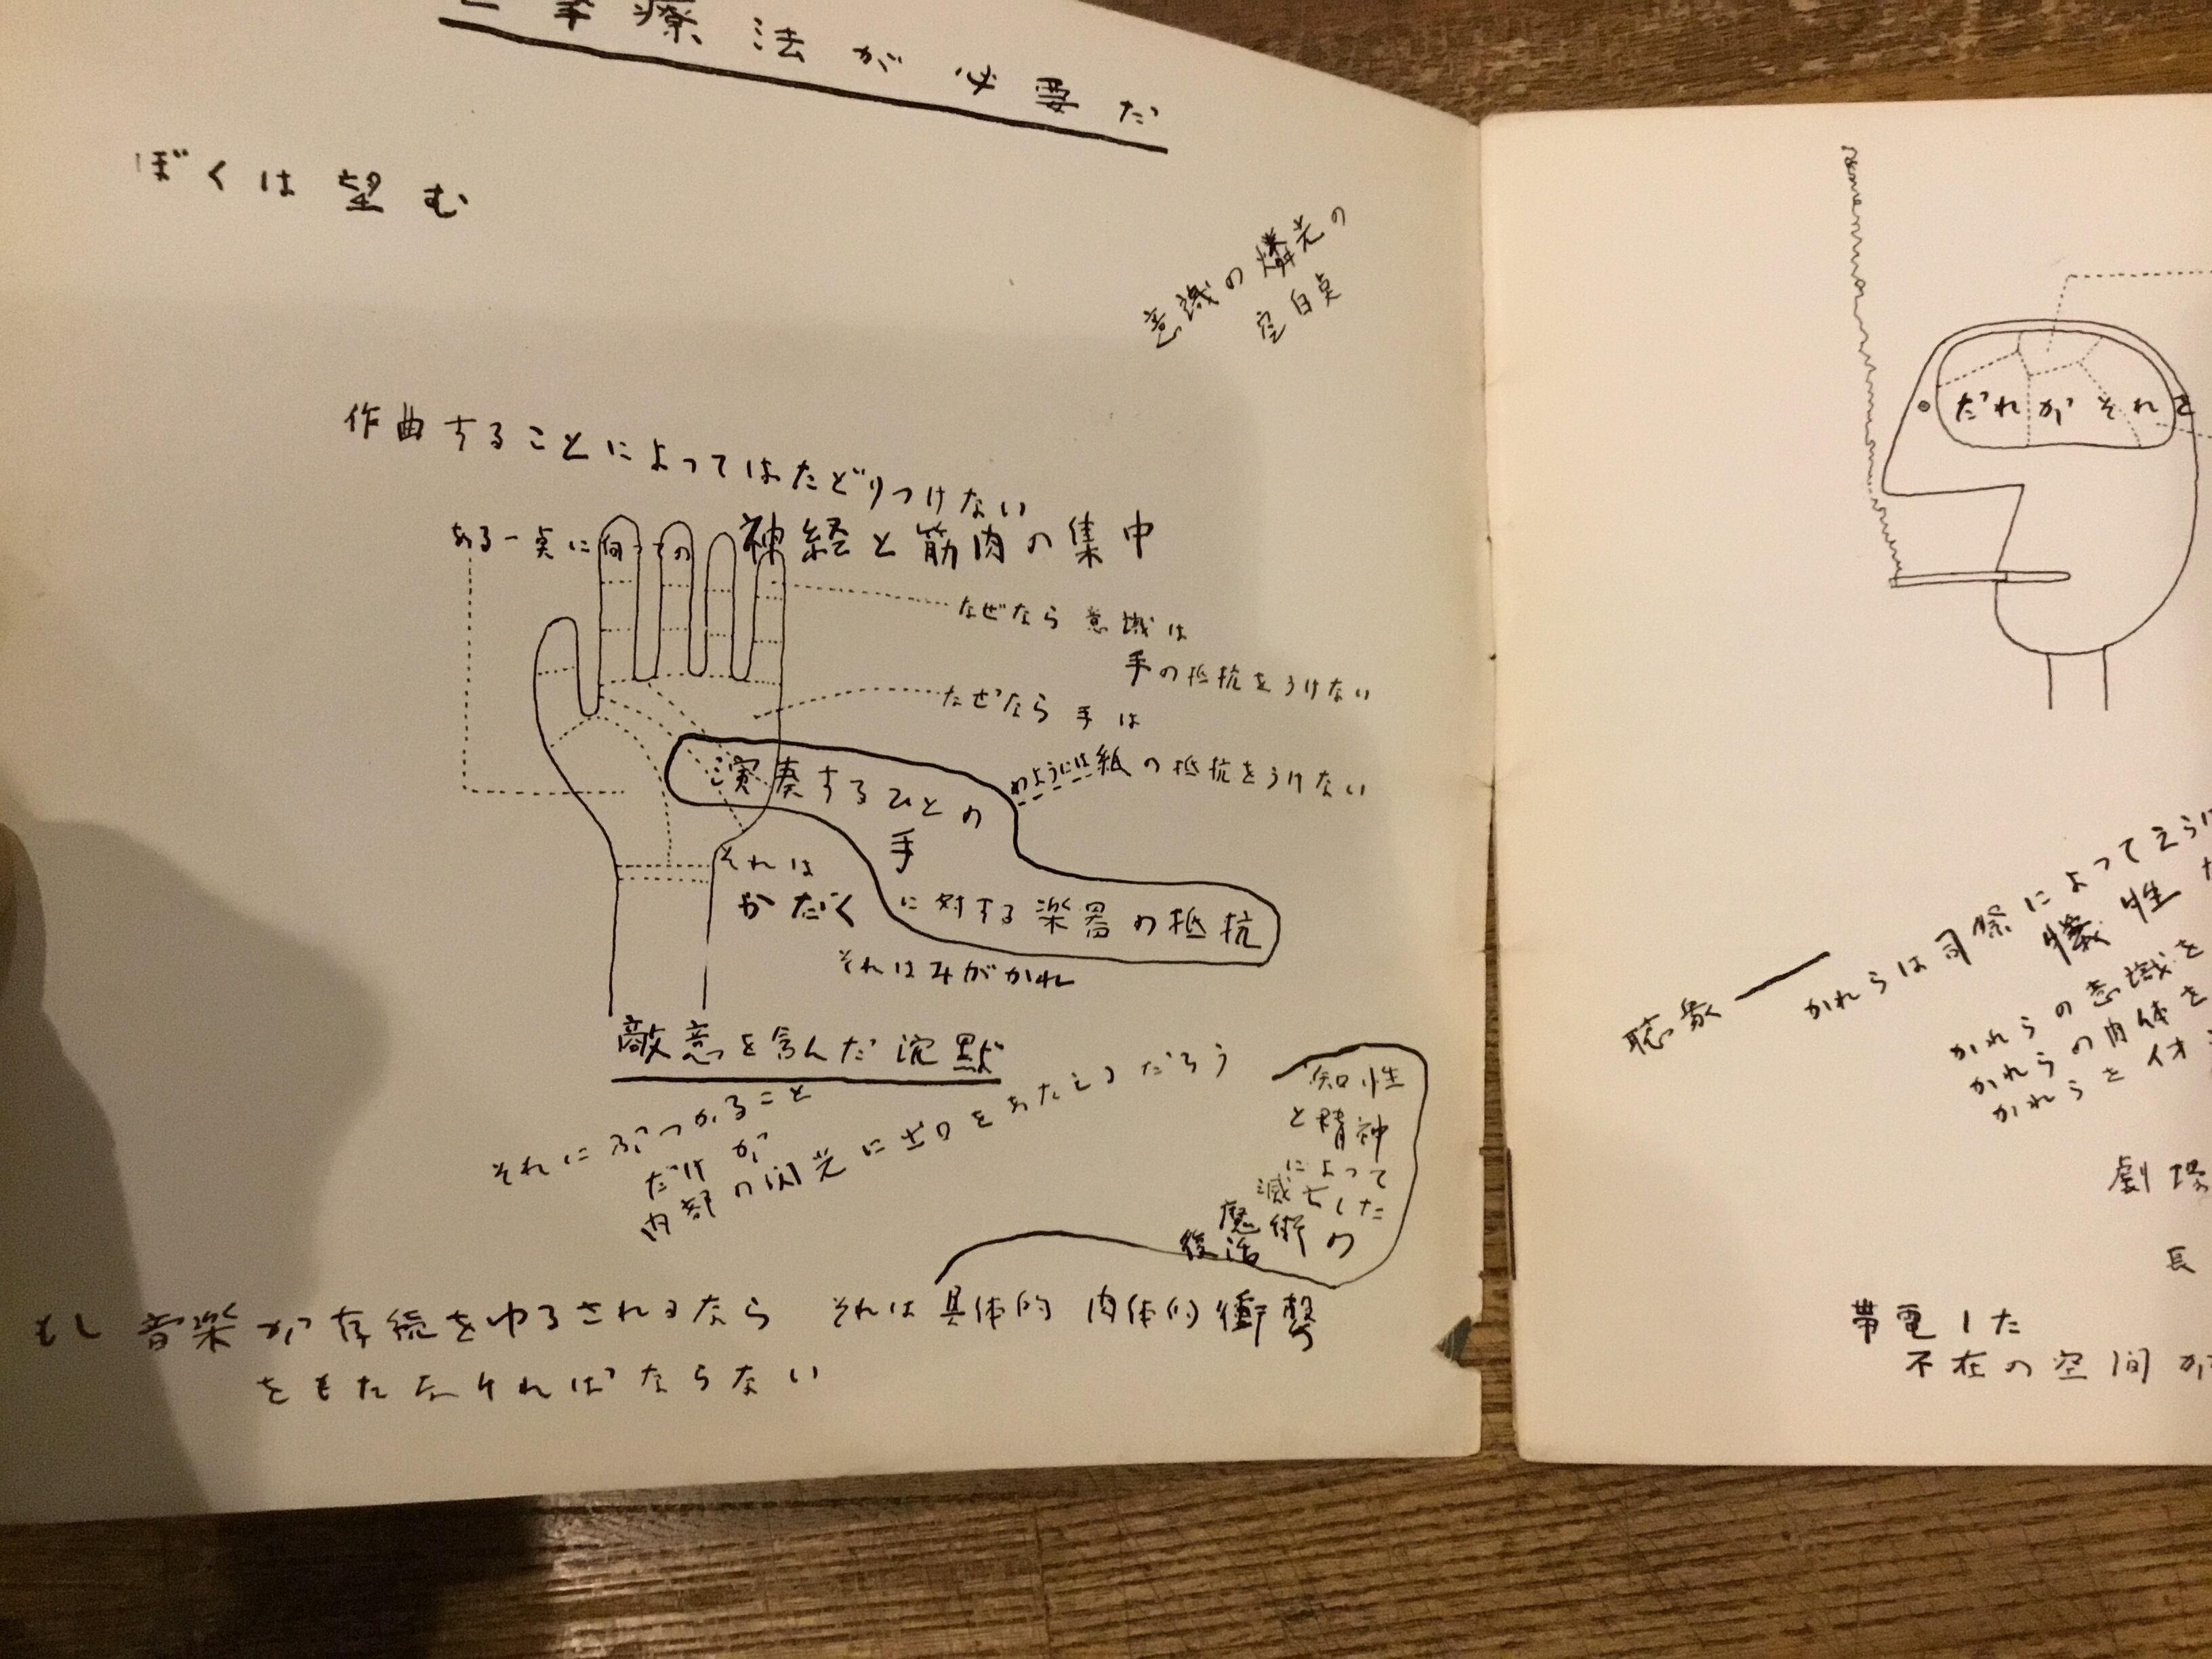 療法が必要だ
ぼくは望む
意識の燐光の
空白点
作曲することによってはたどりつけない
ある一点に向っての神経と筋肉の集中
なぜなら意識は
手の抵抗をうけない
なぜなら手は
のようには紙の抵抗をうけない
演奏するひとの
手
に対する楽器の抵抗
それは
かたく
それはみがかれ
敵意を含んだ沈黙
それにぶつかること
だけが
内部の閃光に出口をあたえるだろう
知性
と精神
によって
滅亡した
魔術の
復活
もし音楽が存続をゆるされるなら それは具体的 肉体的衝撃
をもたなければならない
だれがそれを
聴衆
かれらは司祭によってえら
犠牲
かれらの意識を
かれらの肉体を
かれらを
劇場
長
帯電した
不在の空間が